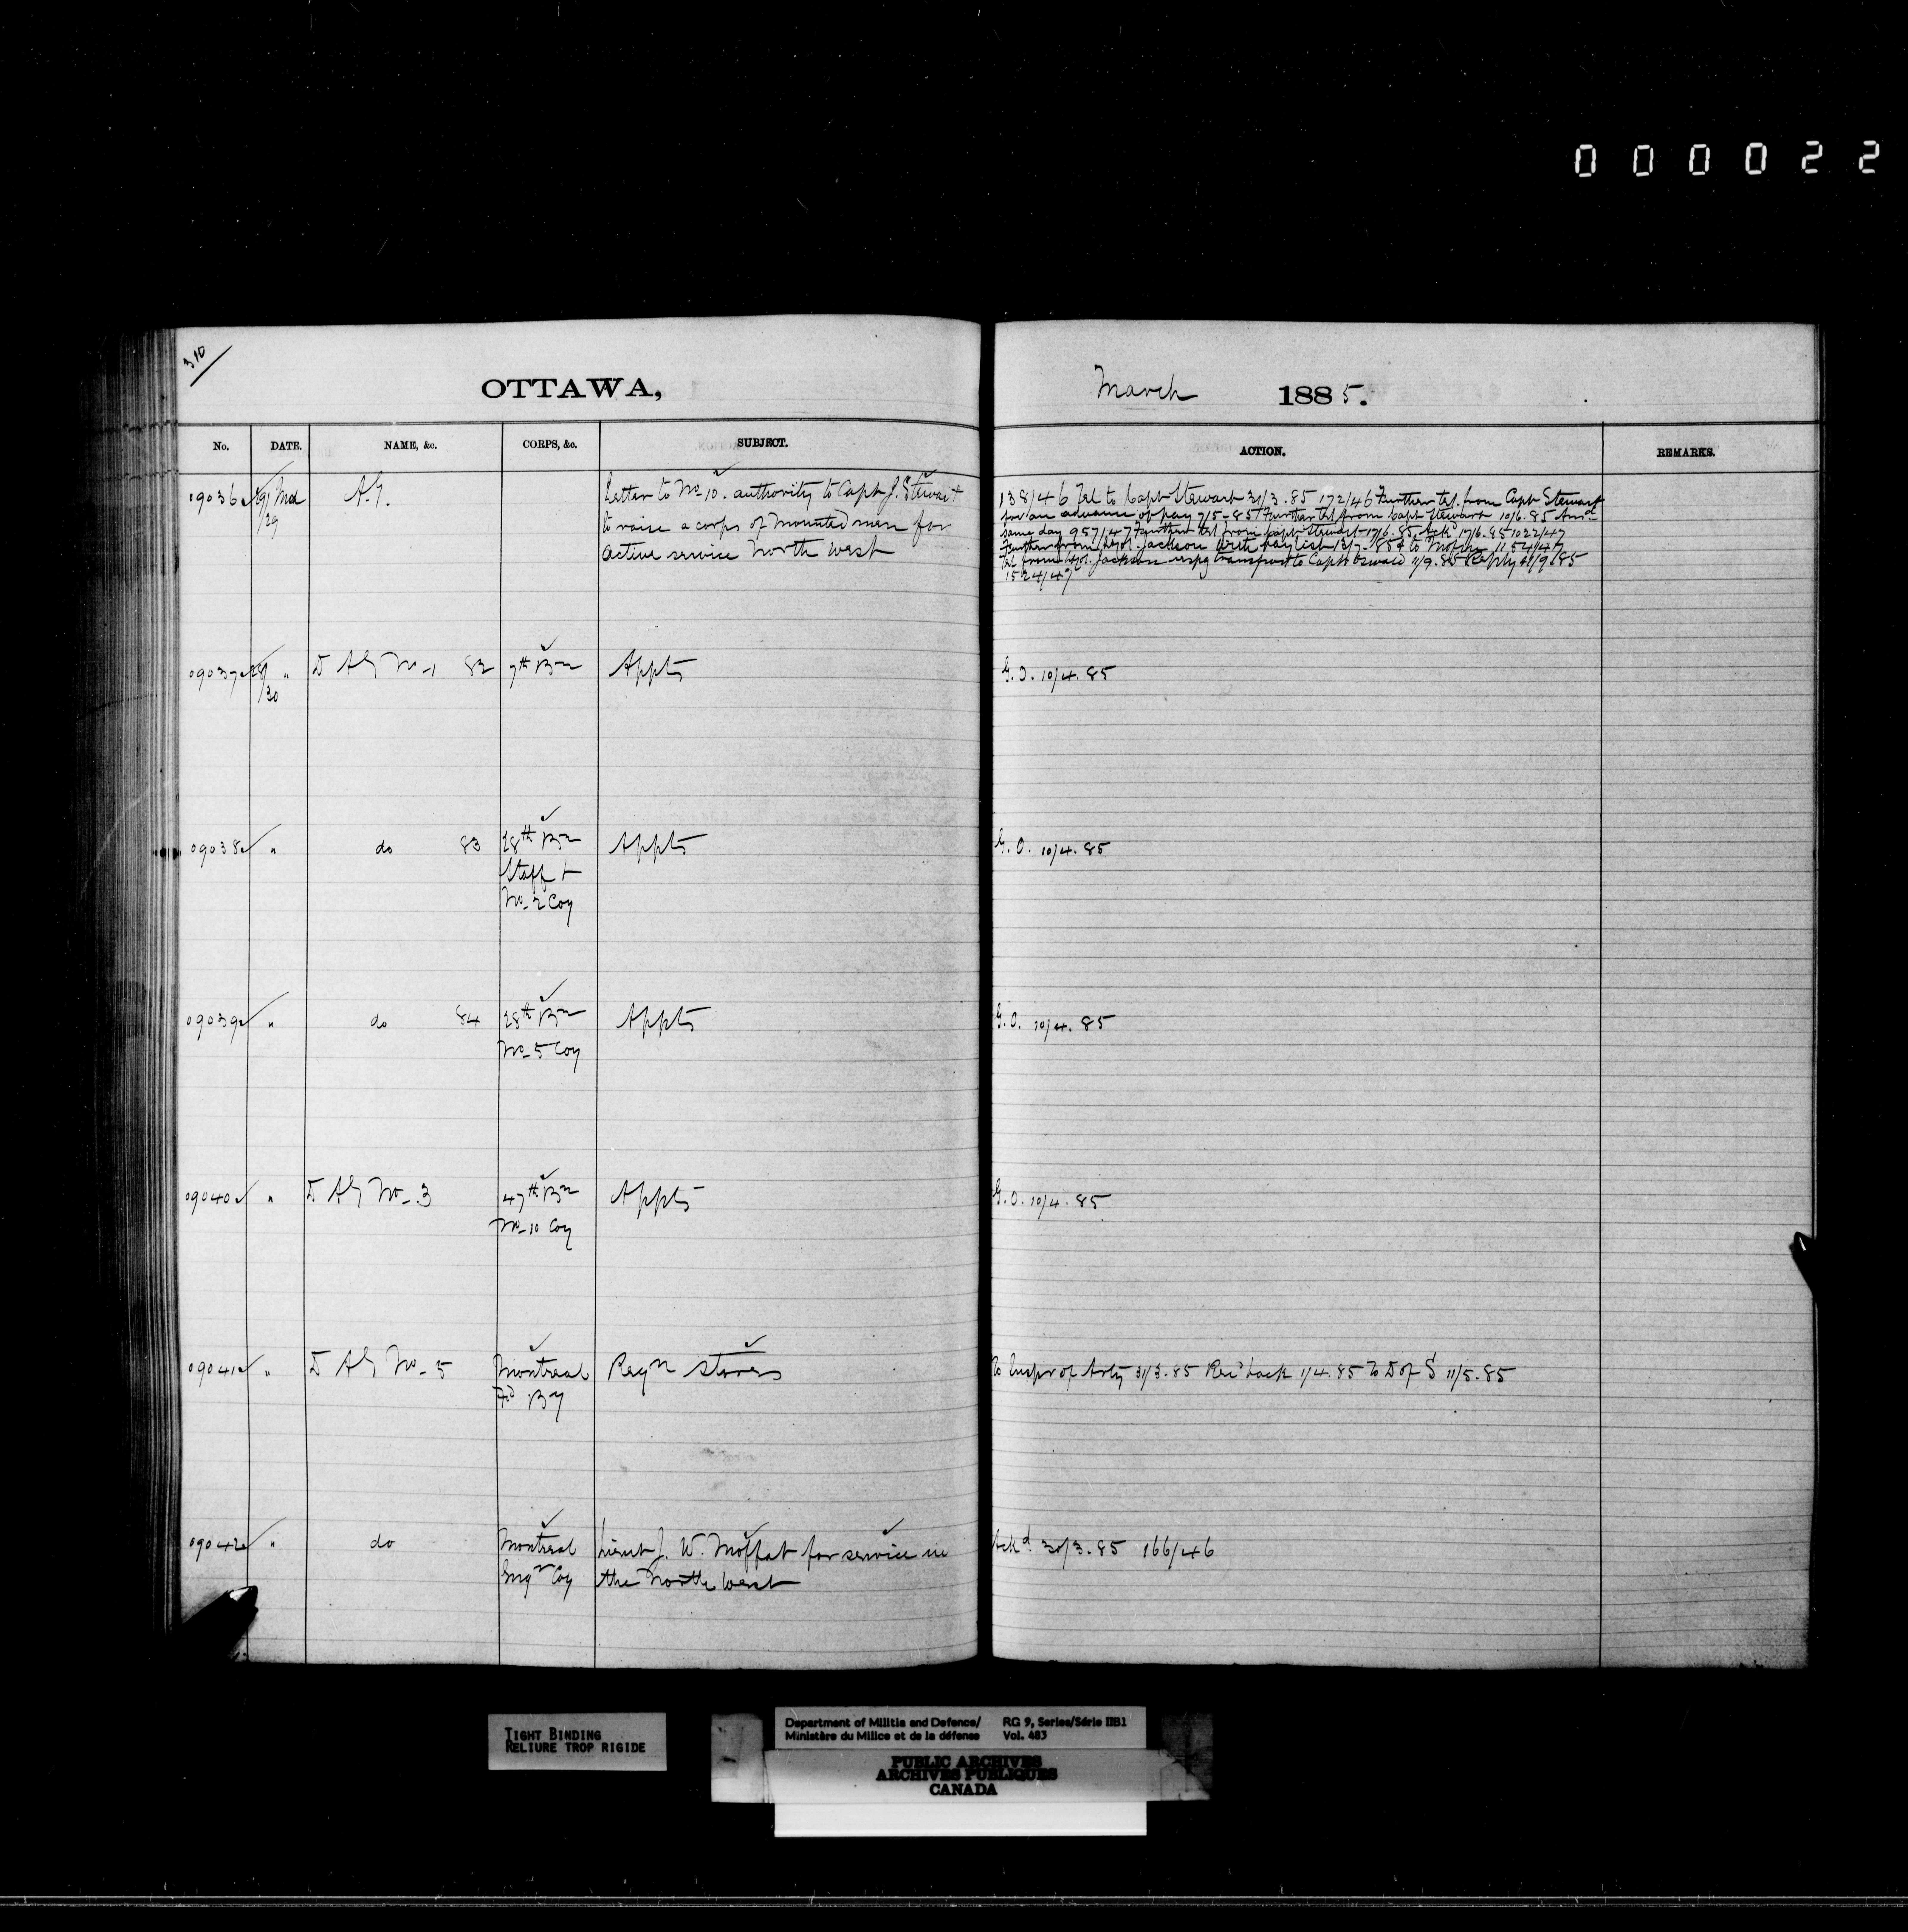 000022
310
OTTAWA,
March 1885.
No. DATE. NAME, &c. CORPS, &c. SUBJECT. ACTION. REMARKS.
09036 29/29 Mch A.G. Letter to No 10. authority to Capt J. Stewart
to raise a corps of mounted men for
active service North West
138/46 Tel to Capt Stewart 31/3.85 172/46 Further tel. from Capt Stewart
for an advance of pay 7/5-85 Further tel from Capt Stewart 10/6.85 Ansd
same day 957/47 Further tel from Capt Stewart 17/6.85 Ackd 17/6.85 1022/47
Further from Lt Col. Jackson with pay list 13/7-85 to 1154/47
Tel from Lt Col. Jackson respg transport to Capt Oswald 11/9.85 Reply 11/9/85
1524/47
09037 28/30 " D AG No-1 82 7th Bn Appts G.O. 10/4.85
09038 " do 83 28th Bn Appts G.O. 10/4.85
Staff +
No-2 Coy
09039 " do 84 28th Bn Appts G.O. 10/4.85
No-5 Coy
09040 " D AG No-3 47th Bn Appts G.O. 10/4.85
No-10 Coy
09041 " D AG No-5 Montreal Reqn stores To Inspr of Arty 31/3.85 Recd back 1/4.85 To D of S 11/5.85
Fd By
09042 " do Montreal Lieut J. W. Moffat for service in Ackd 30/3.85 166/46
Engr Coy the North West
TIGHT BINDING
RELIURE TROP RIGIDE
Department of Militia and Defence/ RG 9, Series/Série IIB1
Ministère du Milice et de la défense Vol. 483
PUBLIC ARCHIVES
ARCHIVES PUBLIQUES
CANADA